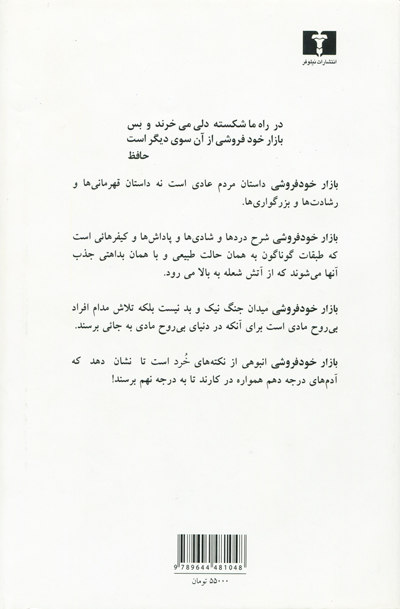 انتشارات نیلوفر
در راه ما شکسته دلی می خرند و بس
بازار خود فروشی از آن سوی دیگر است
حافظ
بازار خودفروشی داستان مردم عادی است نه داستان قهرمانی‌ها و
رشادت‌ها و بزرگواری‌ها.
بازار خودفروشی شرح دردها و شادی‌ها و پاداش‌ها و کیفرهائی است
که طبقات گوناگون به همان حالت طبیعی و با همان بداهتی جذب
آنها می‌شوند که از آتش شعله به بالا می رود.
بازار خودفروشی میدان جنگ نیک و بد نیست بلکه تلاش مدام افراد
بی‌روح مادی است برای آنکه در دنیای بی‌روح مادی به جائی برسند.
بازار خودفروشی انبوهی از نکته‌های خُرد است تا نشان دهد که
آدم‌های درجه دهم همواره در کارند تا به درجه نهم برسند!
9 789644 481048
۵۵۰۰۰ تومان